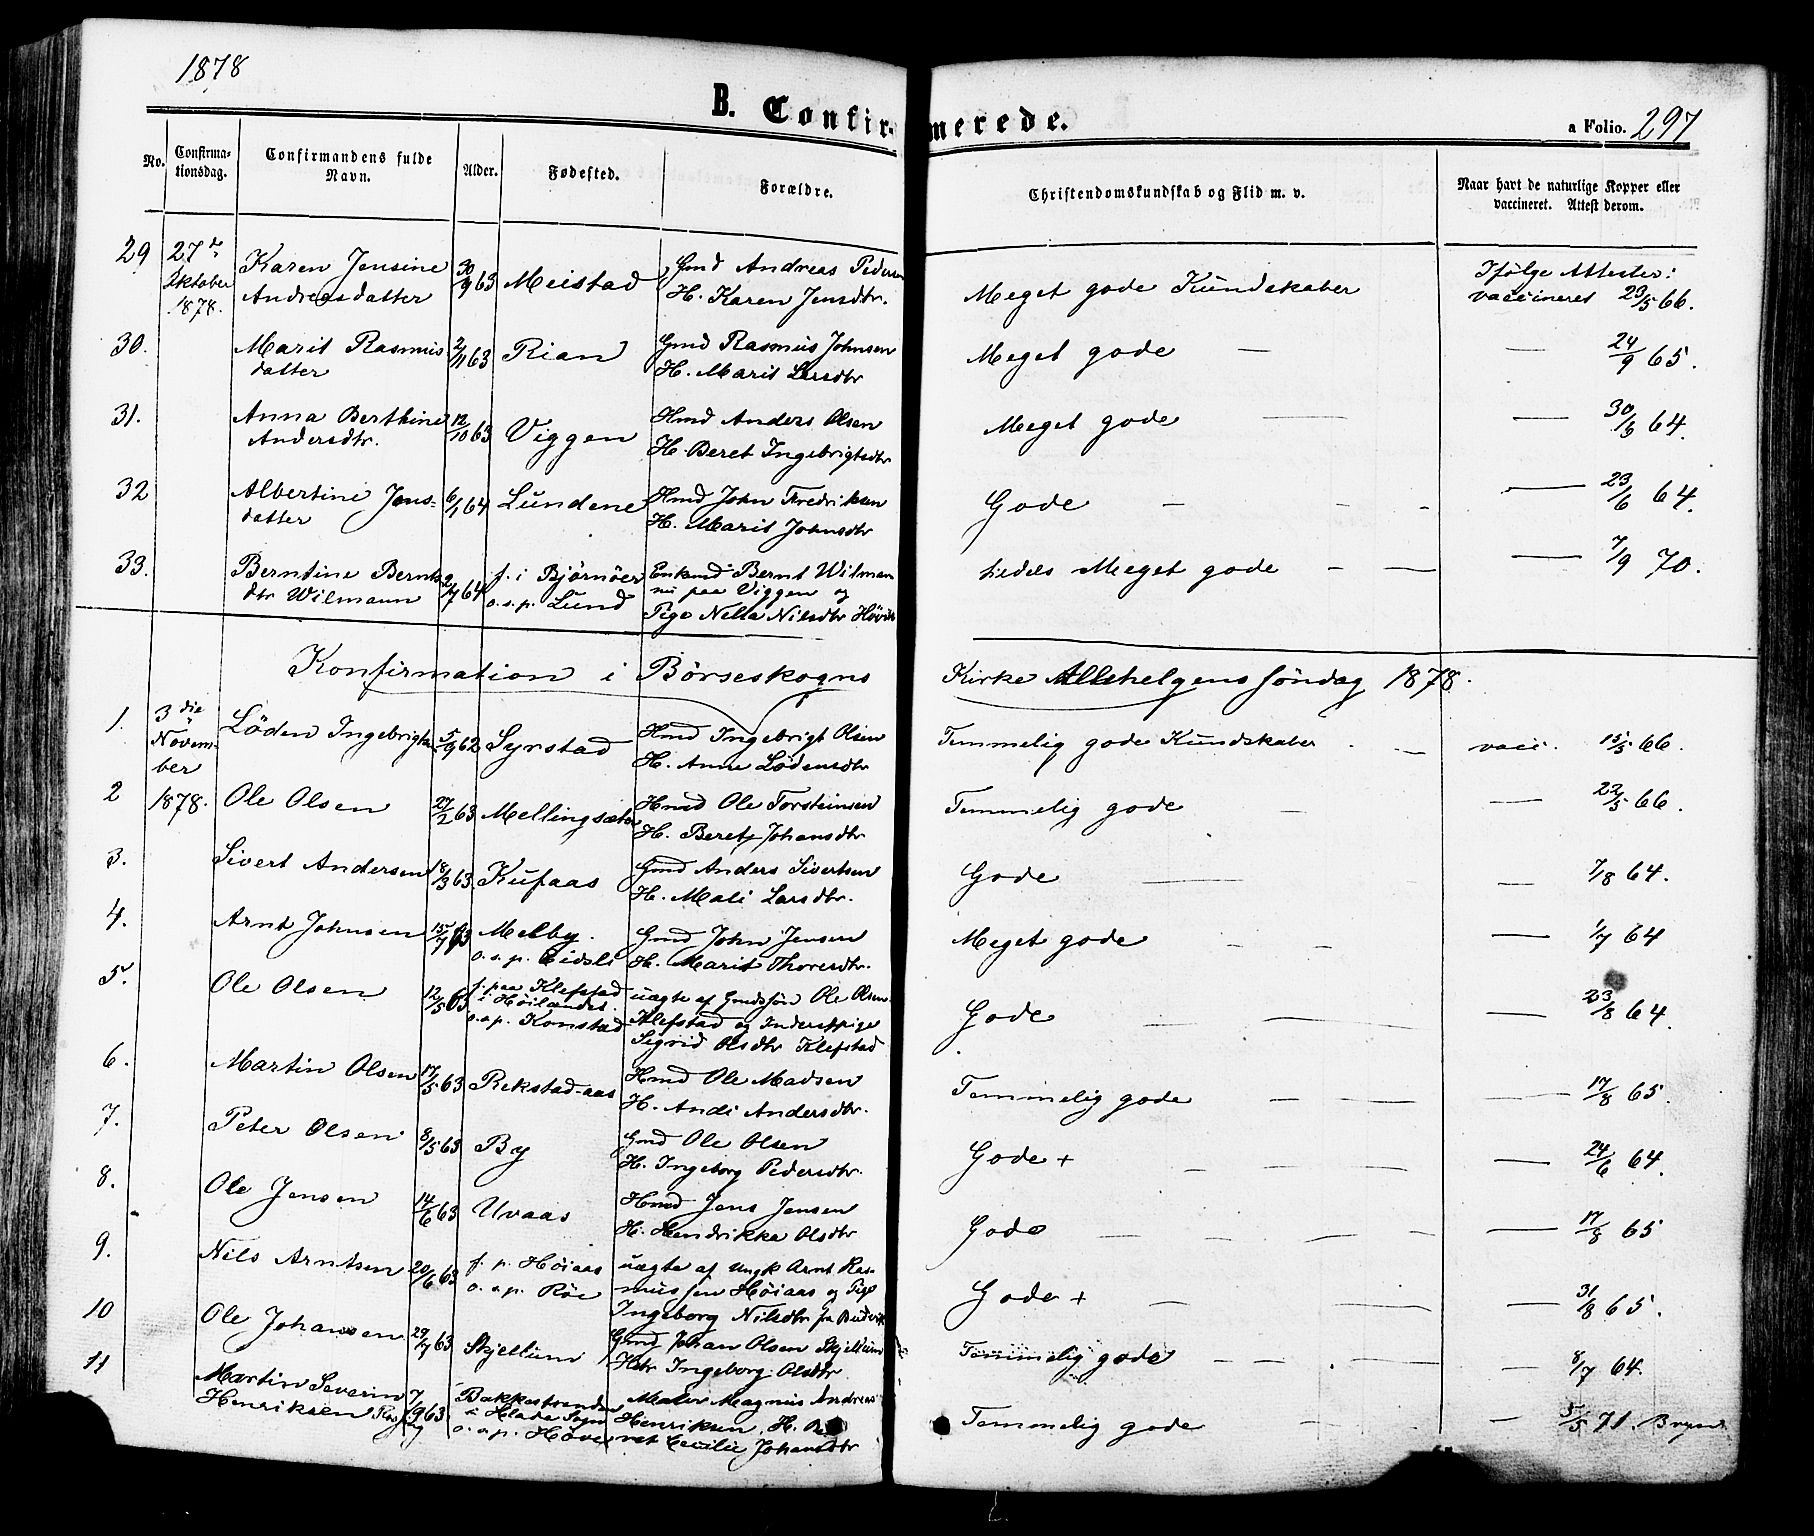 1878
B. Confirmerede.
a Folio. 297
No.
Confirmationsdag.
Confirmandens fulde Navn.
Alder.
Fødested.
Forældre.
Christendomskundskab og Flid m. v.
Naar havt de naturlige Kopper eller vaccineret. Attest derom.
29 27de Oktober 1878. Karen Jensine Andreasdatter 30/9 63 Meistad Gmd Andreas Pedersen H. Karen Jensdtr. Meget gode Kundskaber Ifølge Attester: vaccineret 23/5 66.
30. Marit Rasmusdatter 2/11 63 Rian Gmd Rasmus Johnsen H. Marit Larsdtr Meget gode — — 24/9 65.
31. Anna Berthine Andersdtr. 12/10 63 Viggen Hmd Anders Olsen H. Beret Ingebrigtsdtr Meget gode — — — 30/9 64.
32 Albertine Jonsdatter 6/1 64 Lundene Hmd John Fredriksen H. Marit Johnsdtr Gode — — — — 23/6 64.
33. Berntine Berntsdtr Wilmann 2/7 64 f. i Bjørnøer o.s.p. Lund Enkemd Bernt Wilman nu paa Viggen og Pige Nella Nilsdtr Meget gode — — — 7/9 70.
Konfirmation i Börseskogns Kirke Allehelgens söndag 1878.
1. 3die November 1878. Löden Ingebrigtsen 5/9 62 Syrstad Hmd Ingebrigt Olsen H. Anne Lödensdtr Temmelig gode Kundskaber — vacc. 15/5 66.
2 Ole Olsen 27/2 63 Mellingsæter Hmd Ole Torsteinsen H. Beret Johansdtr Temmelig gode — — 22/5 66.
3. Sivert Andersen 18/3 63 Kufaas Gmd Anders Sivertsen H. Mali Larsdtr. Gode — — 7/8 64.
4. Arnt Johnsen 15/4 63 Melby. o.s.p. Eidsli Gmd John Jensen H. Marit Thoresdtr. Meget gode — — — 1/7 64
5. Ole Olsen 12/5 63 f. paa Klefstad i Höilandet. o.s.p. Konstad uægte af Gmdssön Ole Olsen Klefstad og Inderstpige Sigrid Olsdtr Klefstad Gode — — — 23/8 64.
6. Martin Olsen 17/5 63 Rekstad-aas Hmd Ole Madsen H. Andi Andersdtr. Temmelig gode — — — — 17/8 65.
7. Peter Olsen 8/5 63 By Gmd Ole Olsen H. Ingeborg Pedersdtr. Gode + — — — — 24/6 64.
8. Ole Jensen 14/6 63 Uvaas Hmd Jens Jensen H. Hendrikke Olsdtr Gode — — — — — 17/8 65
9. Nils Arntsen 20/6 63 f. p. Höiaas o.s.p. Röe uægte af Ungk Arnt Rasmussen Höiaas og Pige Ingeborg Nilsdtr Gode + — — — — 31/8 65.
10 Ole Johansen 29/7 63 Skjellum Gmd Johan Olsen Skjellum Hstr Ingeborg Olsdtr Temmelig gode — — — — — 8/7 64.
11 Martin Severin Henriksen 7/9 63 Bakkestranden i Hlade Sogn o.s.p. Maler Magnus Andreas Henriksen. H. Cecilie Johansdtr Temmelig gode — — — 5/5 71.